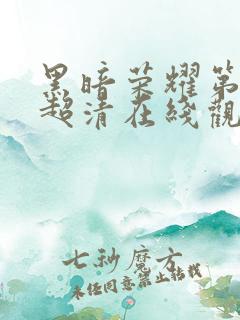 黑暗荣耀第
超清在线觀
七秒魔方
未经同意禁止转载